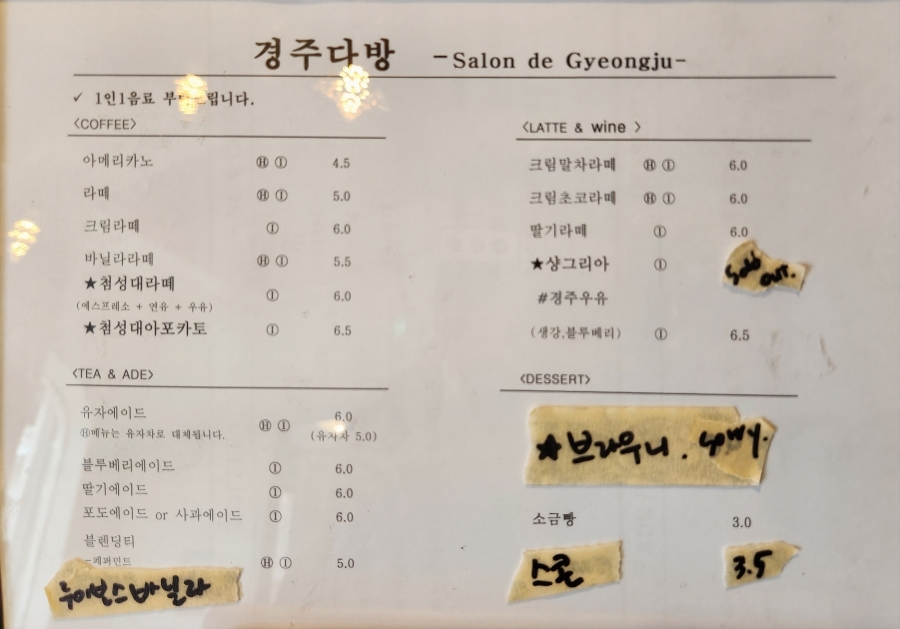 경주다방 -Salon de Gyeongju-
✓ 1인1음료 부 립니다.
<COFFEE>
아메리카노 Ⓗ Ⓘ 4.5
라떼 Ⓗ Ⓘ 5.0
크림라떼 Ⓘ 6.0
바닐라라떼 Ⓗ Ⓘ 5.5
★첨성대라떼
(에스프레소 + 연유 + 우유) Ⓘ 6.0
★첨성대아포카토 Ⓘ 6.5
<TEA & ADE>
유자에이드 6.0
Ⓗ메뉴는 유자차로 대체됩니다. Ⓗ Ⓘ (유자차 5.0)
블루베리에이드 Ⓘ 6.0
딸기에이드 Ⓘ 6.0
포도에이드 or 사과에이드 Ⓘ 6.0
블렌딩티
-페퍼민트 Ⓗ Ⓘ 5.0
루이보스바닐라
<LATTE & wine >
크림말차라떼 Ⓗ Ⓘ 6.0
크림초코라떼 Ⓗ Ⓘ 6.0
딸기라떼 Ⓘ 6.0
★샹그리아 Ⓘ Sold out.
#경주우유
(생강,블루베리) Ⓘ 6.5
<DESSERT>
★브라우니.
소금빵 3.0
스콘 3.5